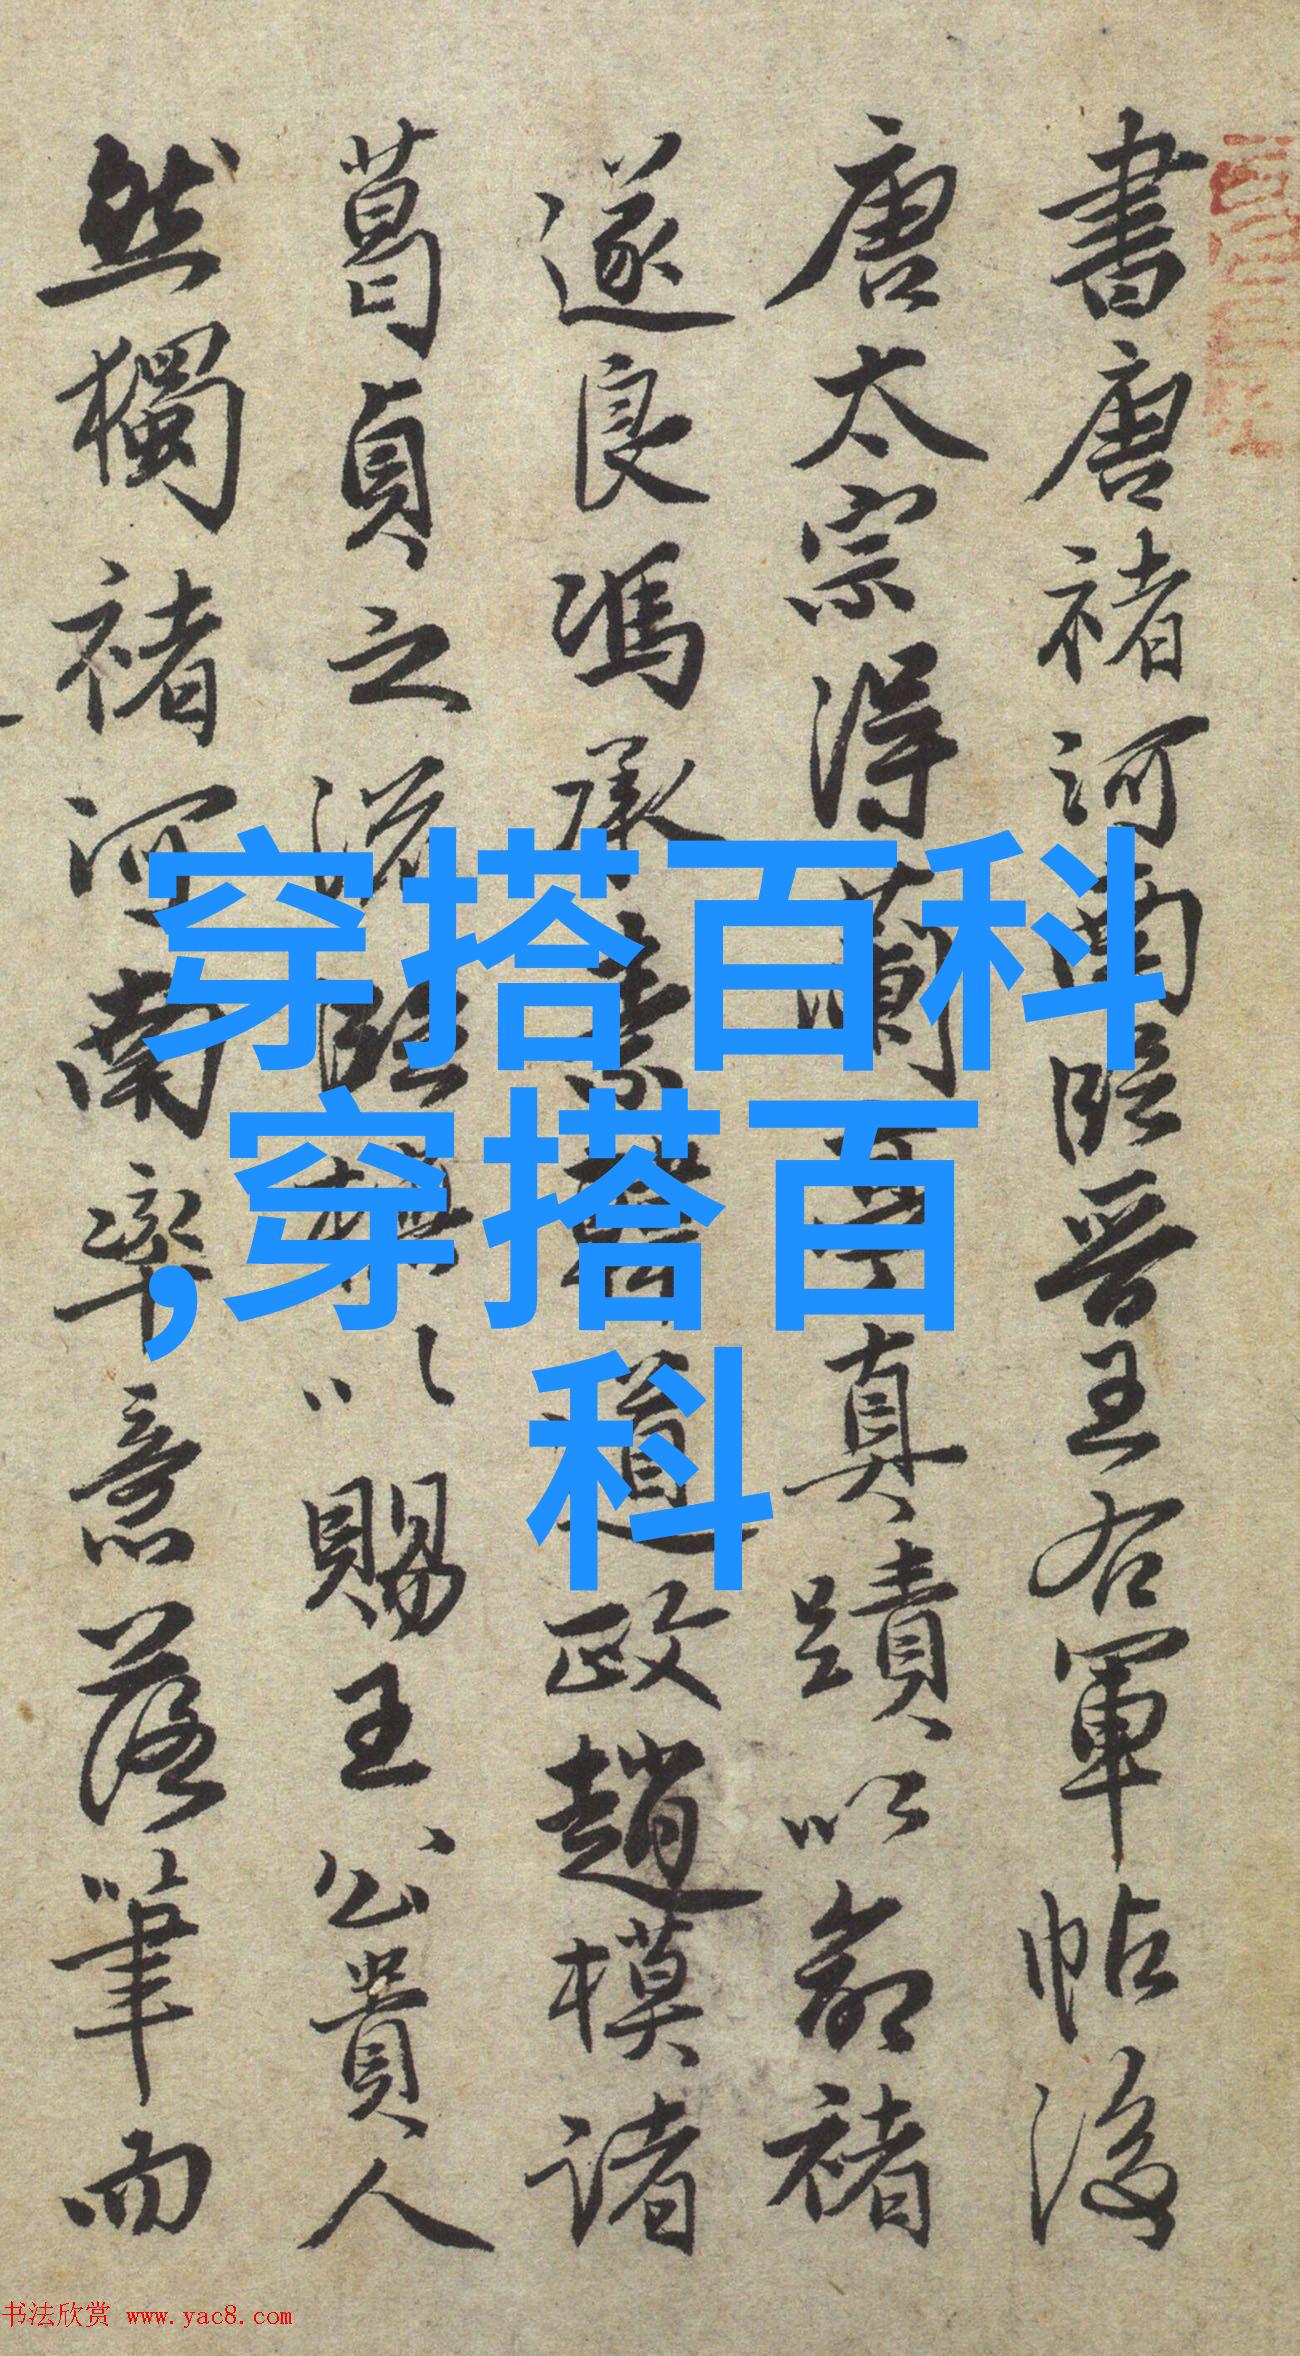 書唐褚河南臨晉王右軍帖後
唐太宗得蘭亭真蹟以命褚
遂良馮承素韓道政趙模諸
葛貞之流臨模以賜王公貴人
然獨褚河南率意落筆而
穿搭百科
,穿搭百
科
书法欣赏 www.yac8.com